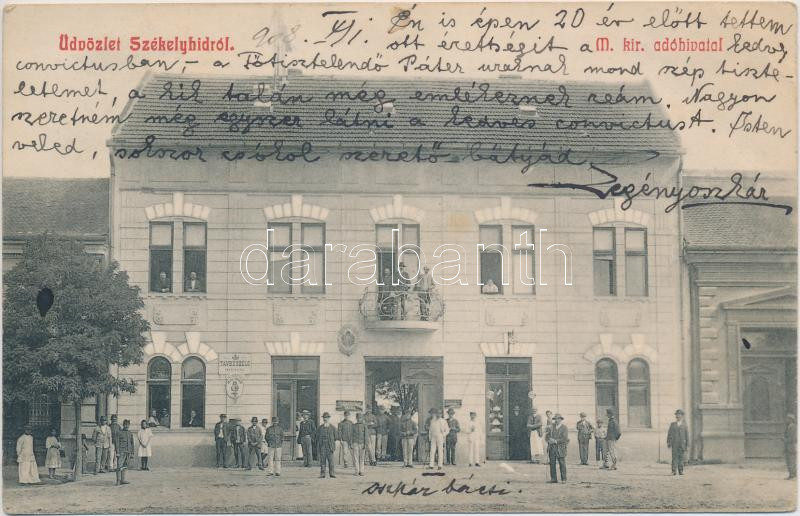 Üdvözlet Székelyhidról.
903. XI/1.
Én is épen 20 év előtt tettem
ott érettségit a
M. kir. adóhivatal
kedves
convictusban, – a Főtisztelendő Páter uraknak mond szép tiszte-
letemet, a kik talán még emlékeznek reám. Nagyon
szeretném még egyszer látni a kedves convictust. Isten
veled, sokszor csókol szerető bátyád
oszkár
darabanth
TÁVBESZÉLŐ
oszkár bácsi.